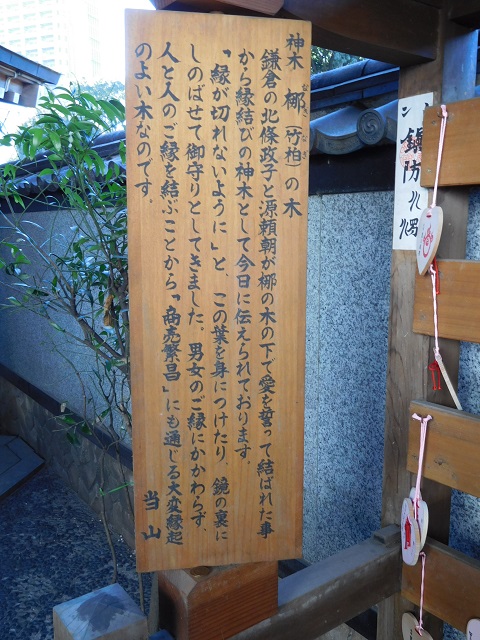 神木 梛（竹柏）の木
むき なぎ
鎌倉の北條政子と源頼朝が梛の木の下で愛を誓って結ばれた事
から縁結びの神木として今日に伝えられております。
「縁が切れないように」と、この葉を身につけたり、鏡の裏に
しのばせて御守りとしてきました。男女のご縁にかかわらず、
人と人のご縁を結ぶことから「商売繁昌」にも通じる大変縁起
のよい木なのです。
当山